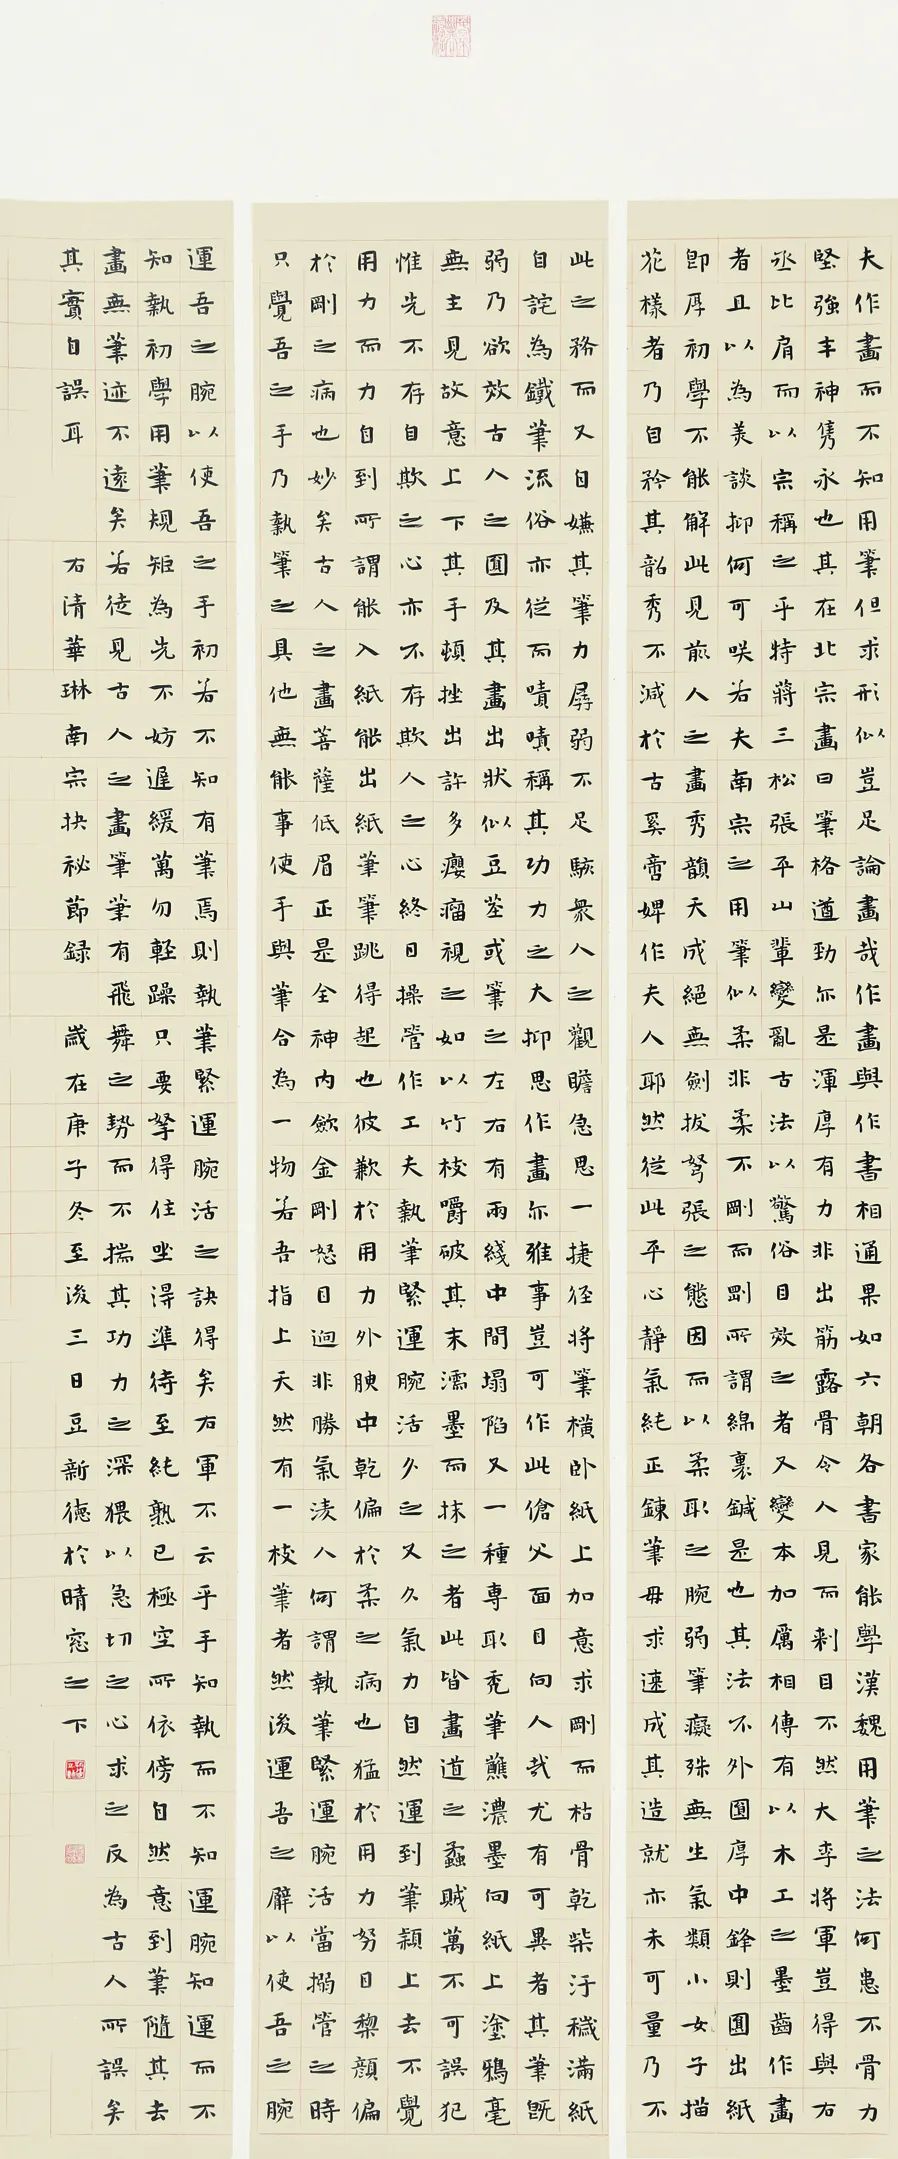 夫作畫而不知用筆但求形似豈足論畫哉作畫與作書相通果如六朝各書家能學漢魏用筆之法何患不骨力
堅強丰神雋永也其在北宗畫曰筆格遒勁亦是渾厚有力非出筋露骨令人見而刺目不然大李將軍豈得與右
丞比肩而以宗稱之乎特蔣三松張平山輩變亂古法以驚俗目效之者又變本加厲相傳有以木工之墨齒作畫
者且以為美談抑何可咲若夫南宗之用筆似柔非柔不剛而剛所謂綿裏鍼是也其法不外圓厚中鋒則圓出紙
即厚初學不能解此見前人之畫秀韻天成絕無劍拔弩張之態因而以柔取之腕弱筆癡殊無生氣類小女子描
花樣者乃自矜其韶秀不減於古奚啻婢作夫人耶然從此平心靜氣純正鍊筆毋求速成其造就亦未可量乃不
此之務而又自嫌其筆力孱弱不足駭衆人之觀瞻急思一捷徑將筆橫臥紙上加意求剛而枯骨乾柴汙穢滿紙
自詫為鐵筆流俗亦從而嘖嘖稱其功力之大抑思作畫亦雅事豈可作此傖父面目向人哉尤有可異者其筆既
弱乃欲效古人之圓及其畫出狀似豆莖或筆之左右有兩綫中間塌陷又一種專取禿筆蘸濃墨向紙上塗鴉毫
無主見故意上下其手頓挫出許多癭瘤視之如以竹枝嚼破其末濡墨而抹之者此皆畫道之蟊賊萬不可誤犯
惟先不存自欺之心亦不存欺人之心終日操管作工夫執筆緊運腕活久之又久氣力自然運到筆穎上去不覺
用力而力自到所謂能入紙能出紙筆筆跳得起也彼歉於用力外腴中乾偏於柔之病也猛於用力努目黎顏偏
於剛之病也妙矣古人之畫菩薩低眉正是全神內歛金剛怒目迥非勝氣淩人何謂執筆緊運腕活當搦管之時
只覺吾之手乃執筆之具他無能事使手與筆合為一物若吾指上天然有一枝筆者然後運吾之臂以使吾之腕
運吾之腕以使吾之手初若不知有筆焉則執筆緊運腕活之訣得矣右軍不云乎手知執而不知運腕知運而不
知執初學用筆規矩為先不妨遲緩萬勿輕躁只要拏得住坐得準待至純熟已極空所依傍自然意到筆隨其去
畫無筆迹不遠矣若徒見古人之畫筆筆有飛舞之勢而不揣其功力之深猥以急切之心求之反為古人所誤矣
其實自誤耳　右清華琳南宗抉祕節録　歲在庚子冬至後三日豆新德於晴窓之下